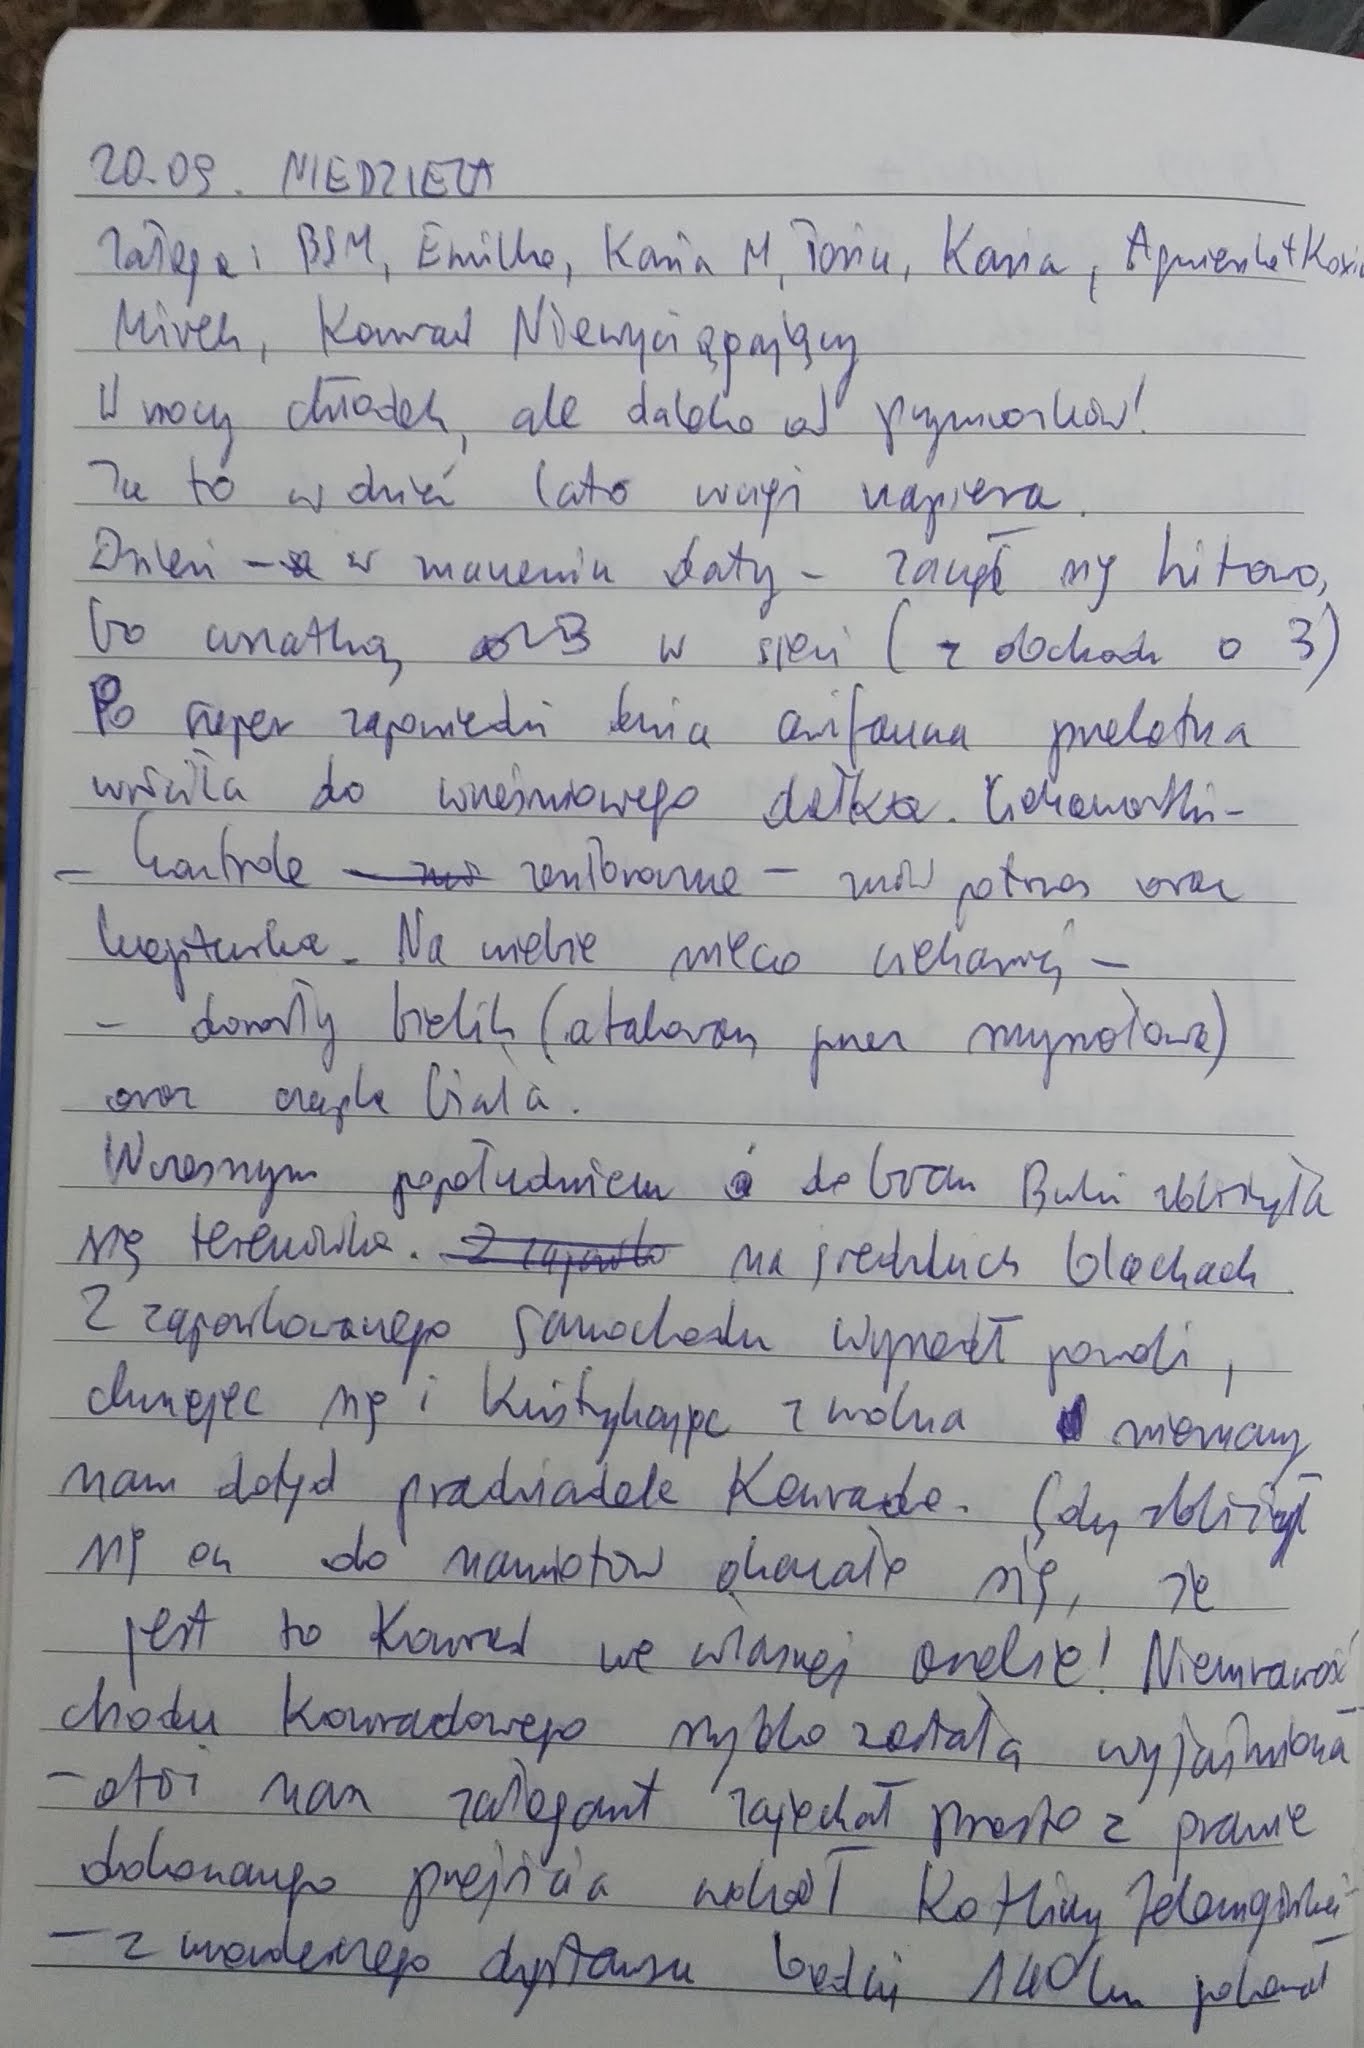 20.09. NIEDZIELA
Załoga: BSM, Emilka, Kasia M, Tosiu, Kasia, Agnieszka + Kasia
Mirek, Konrad Niewyciągający
W nocy chłodek, ale daleko od przymrozków!
Za to w dzień lato wciąż napiera.
Dzień – w znaczeniu daty – zaczął się hitowo,
bo uszatką w sieci (z obchodu o 3)
Po super zapowiedzi dnia awifauna przelotna
wróciła do wrześniowego dołka. Ciekawostki –
– kontrole zaobrączkowane – znów potrzos oraz
kapturka. Na niebie nieco ciekawiej –
– dorosły bielik (atakowany przez myszołowa)
oraz czapla biała.
Wczesnym popołudniem do bram Buki zbliżyła
się terenówka. na siedzluch blachach.
Z zaparkowanego samochodu wyszedł powoli,
chwiejąc się i kusztykając z wolna nieznany
nam dotąd pradziadek Konrada. Gdy zbliżył
się on do namiotów okazało się, że
jest to Konrad we własnej osobie! Niemrawość
chodu Konradowego szybko została wyjaśniona
– otóż nasz załogant zajechał prosto z prawie
dokonanego przejścia wokół Kotliny Jeleniogórskiej
– z morderczego dystansu bodaj 140km pokonał